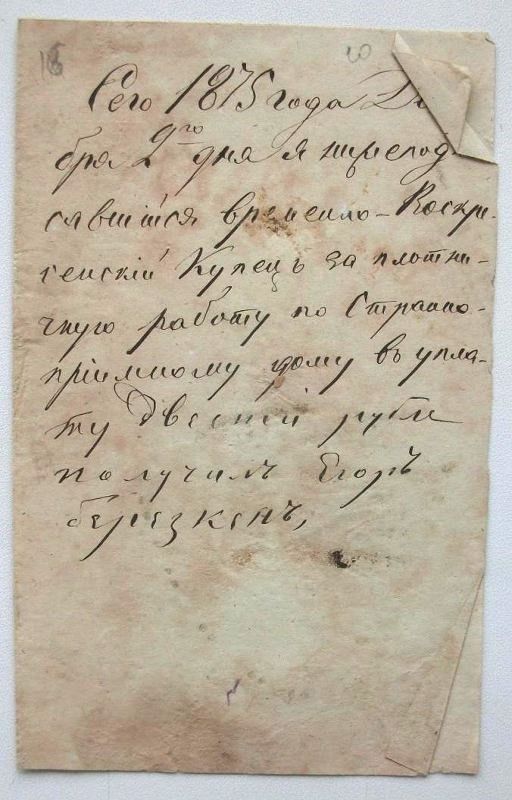 16 10
Сего 1875 года Де
бря 2го дня я нижепод
савшийся временно-Воскри-
сенский Купецъ за плотни-
чную работу по Странно-
приімному дому въ упла-
ту двести рубли
получилъ Егоръ
березкенъ,